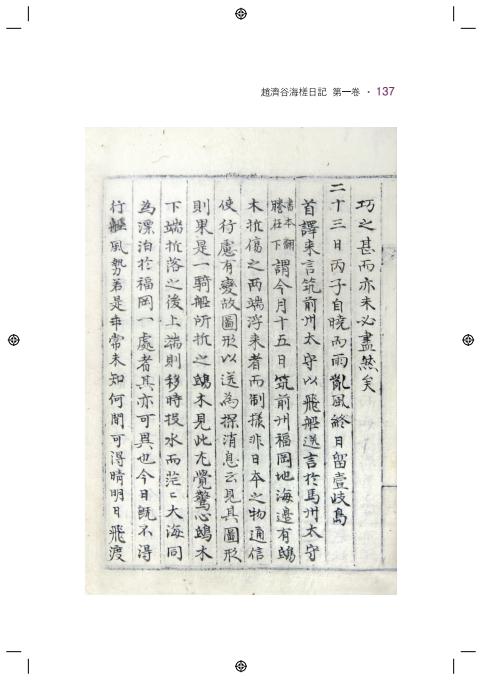 趙濟谷海槎日記 第一巻 · 137
巧之甚而亦未必盡然矣
二十三日丙子自曉而雨亂風終日留壹岐島
首譯来言筑前州太守以飛船送言於馬州太守
書本翻謄在下謂今月十五日筑前州福岡地海邊有鴟
木折傷之两端浮来者而制㨾非日本之物通信
使行慮有變故圖形以送為探消息云見其圖形
則果是一騎船所折之鴟木見此尤覺驚心鴟木
下端折落之後上端則移時投水而茫〻大海同
為漂泊於福岡一處者其亦可異也今日旣不得
行船風勢若是乖常未知何間可得晴明日飛渡